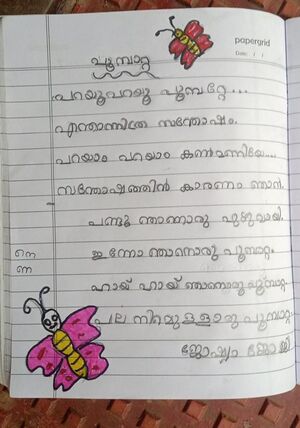 papergrid
Date: / /
പൂമ്പാറ്റ
പറയൂപറയൂ പൂമ്പാറ്റേ...
എന്താണിത്ര സന്തോഷം.
പറയാം പറയാം കൺമണിയേ...
സന്തോഷത്തിൻ കാരണം ഞാൻ.
പണ്ടു ഞാനൊരു പുഴുവായി.
ഇന്നോ ഞാനൊരു പൂമ്പാറ്റ.
ഹായ് ഹായ് ഞാനൊരു പൂമ്പാറ്റ.
പല നിറമുള്ളൊരു പൂമ്പാറ്റ